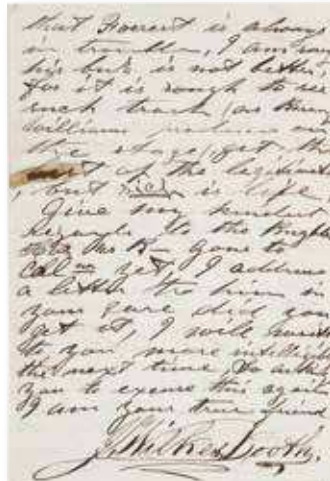 that Forrest is always
in trouble, I am sorry
his but is not better,
for it is rough to see
such trash (as Harry
William produces on
the stage, get the
best of the legitimate
, but such is life
Give my kindest
regards to the
has Mr B— gone to
Cal— yet, I addressed
a letter to him in
your care did you
get it, I will write
to you more intelligibly
the next time, So asking
you to excuse this again
I am your true friend
J. Wilkes Booth.